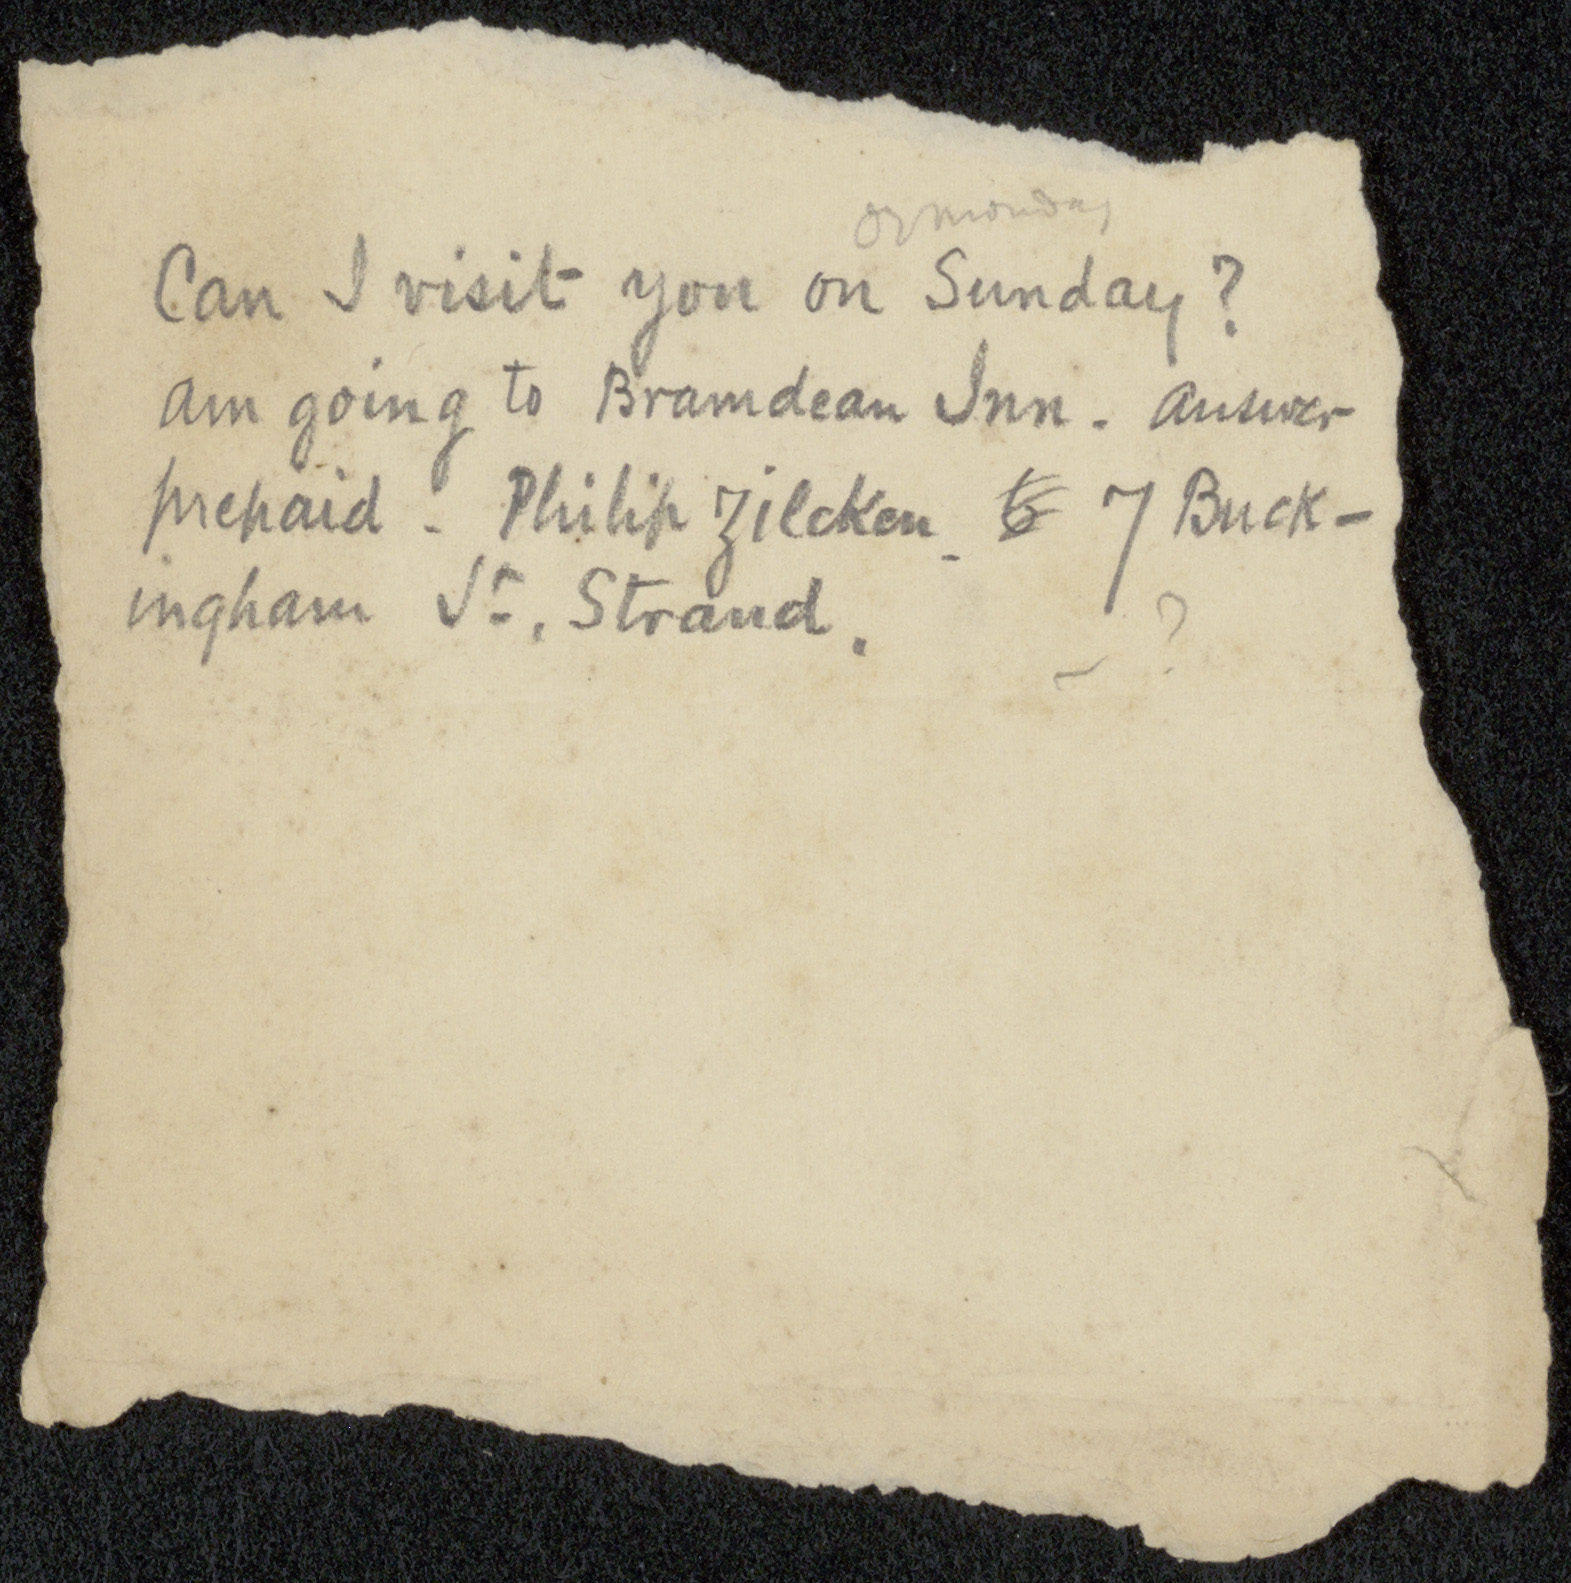 or monday
Can I visit you on Sunday?
am going to Bramdean Inn. answer
prepaid - Philip Zilcken - 7 Buck-
ingham St., Strand.
?